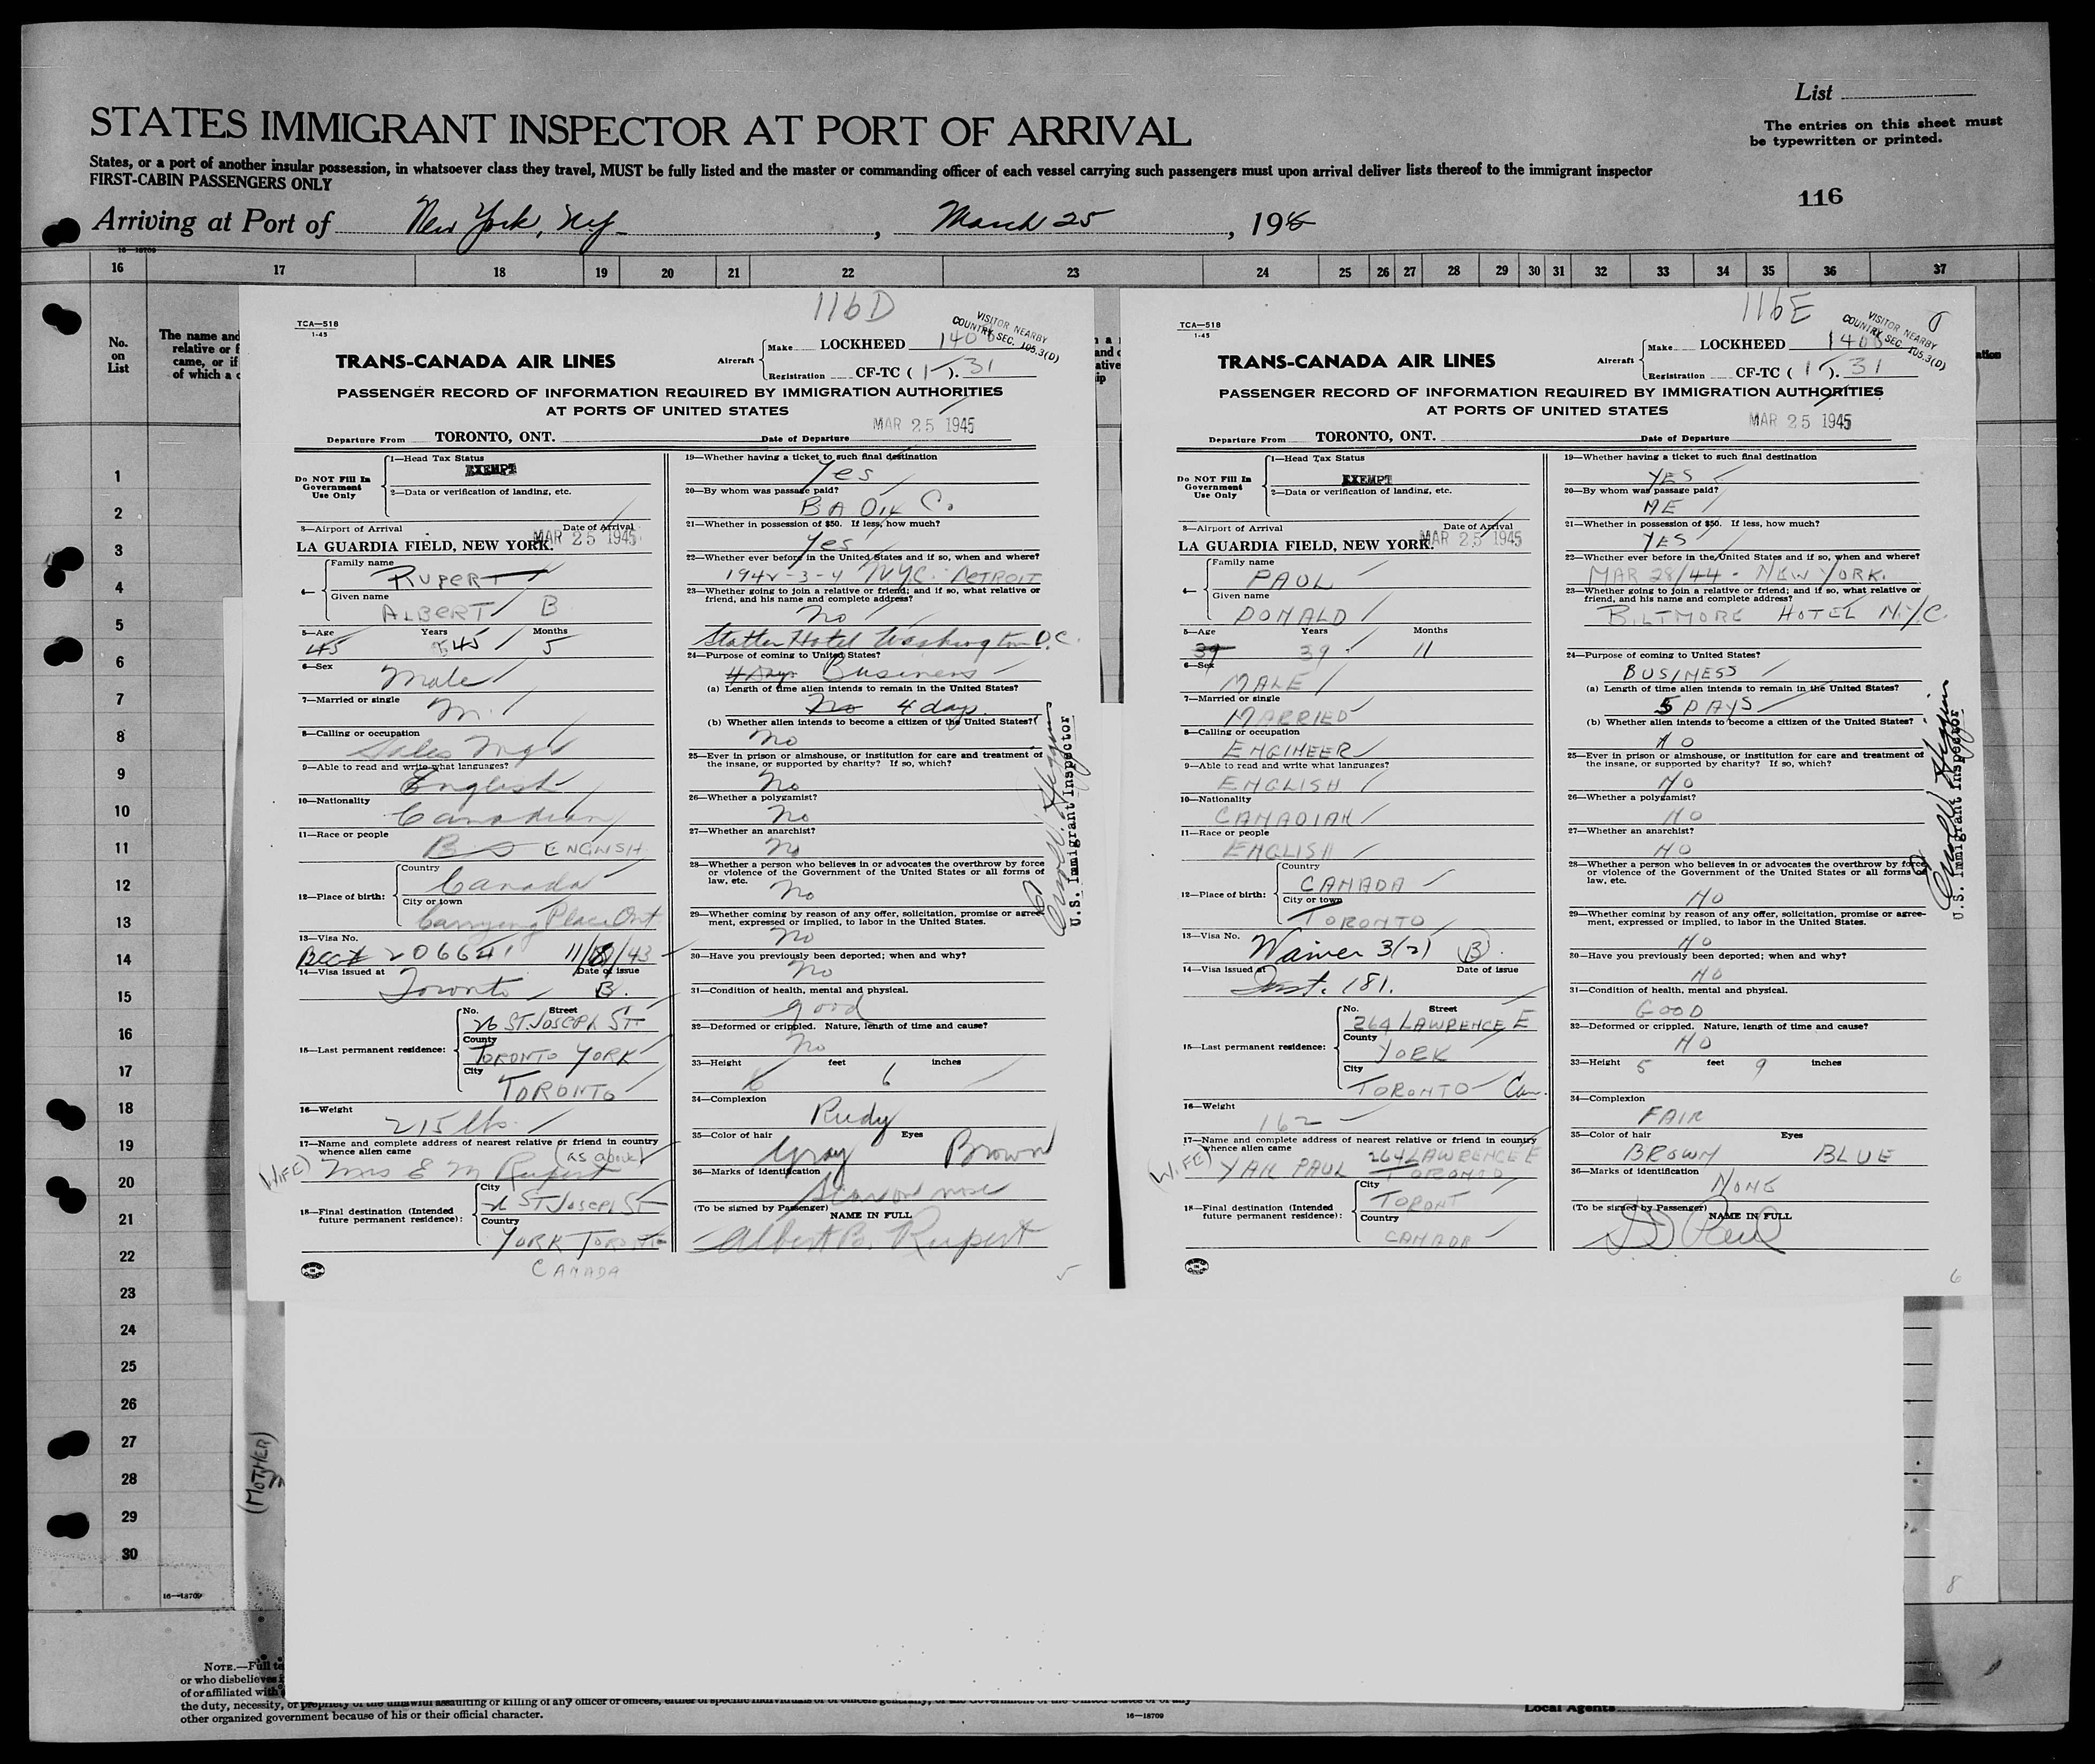 List
The entries on this sheet must
be typewritten or printed.
STATES IMMIGRANT INSPECTOR AT PORT OF ARRIVAL
States, or a port of another insular possession, in whatsoever class they travel, MUST be fully listed and the master or commanding officer of each vessel carrying such passengers must upon arrival deliver lists thereof to the immigrant inspector
FIRST-CABIN PASSENGERS ONLY
116
Arriving at Port of New York, N.Y. , March 25 , 19
16—18709
16 17 18 19 20 21 22 23 24 25 26 27 28 29 30 31 32 33 34 35 36 37
No.
on
List
The name and
relative or f
came, or if
of which a c
1
2
3
4
5
6
7
8
9
10
11
12
13
14
15
16
17
18
19
20
21
22
23
24
25
26
27
28
29
30
16—18709
116D
TCA—518
1-45
VISITOR NEARBY
COUNTRY SEC. 105.3(D)
TRANS-CANADA AIR LINES
Aircraft
Make LOCKHEED 1408
Registration CF-TC ( ). 31
PASSENGER RECORD OF INFORMATION REQUIRED BY IMMIGRATION AUTHORITIES
AT PORTS OF UNITED STATES
Departure From TORONTO, ONT.
Date of Departure MAR 25 1945
Do NOT Fill In
Government
Use Only
1—Head Tax Status
EXEMPT
2—Data or verification of landing, etc.
3—Airport of Arrival Date of Arrival
LA GUARDIA FIELD, NEW YORK. MAR 25 1945
4—
Family name
RUPERT
Given name
ALBERT B
5—Age Years Months
45 45 5
6—Sex
Male
7—Married or single
M.
8—Calling or occupation
Sales Mgr
9—Able to read and write what languages?
English
10—Nationality
Canadian
11—Race or people
ENGLISH
12—Place of birth:
Country
Canada
City or town
Carrying Place Ont
13—Visa No.
206641 11/8/43
14—Visa issued at Date of issue
Toronto B.
15—Last permanent residence:
No. Street
26 ST. JOSEPH ST
County
TORONTO YORK
City
TORONTO
16—Weight
215 lbs.
17—Name and complete address of nearest relative or friend in country
whence alien came (as above)
(WIFE) Mrs E M Rupert
18—Final destination (Intended
future permanent residence):
City
26 ST JOSEPH ST
Country
YORK TORONTO
CANADA
19—Whether having a ticket to such final destination
Yes
20—By whom was passage paid?
B A Oil C.
21—Whether in possession of $50. If less, how much?
Yes
22—Whether ever before in the United States and if so, when and where?
1942-3-4 N.Y.C. DETROIT
23—Whether going to join a relative or friend; and if so, what relative or
friend, and his name and complete address?
No
Statler Hotel Washington D.C.
24—Purpose of coming to United States?
4 Days Business
(a) Length of time alien intends to remain in the United States?
No 4 days.
(b) Whether alien intends to become a citizen of the United States?
No
25—Ever in prison or almshouse, or institution for care and treatment of
the insane, or supported by charity? If so, which?
No
26—Whether a polygamist?
No
27—Whether an anarchist?
No
28—Whether a person who believes in or advocates the overthrow by force
or violence of the Government of the United States or all forms of
law, etc.
No
29—Whether coming by reason of any offer, solicitation, promise or agree-
ment, expressed or implied, to labor in the United States.
No
30—Have you previously been deported; when and why?
No
31—Condition of health, mental and physical.
good
32—Deformed or crippled. Nature, length of time and cause?
No
33—Height feet inches
6 6
34—Complexion
Rudy
35—Color of hair Eyes
Gray Brown
36—Marks of identification
Scar on nose
(To be signed by Passenger) NAME IN FULL
Albert B. Rupert
5
U.S. Immigrant Inspector
116E
TCA—518
1-45
VISITOR NEARBY
COUNTRY SEC. 105.3(D)
TRANS-CANADA AIR LINES
Aircraft
Make LOCKHEED 1408
Registration CF-TC ( ). 31
PASSENGER RECORD OF INFORMATION REQUIRED BY IMMIGRATION AUTHORITIES
AT PORTS OF UNITED STATES
Departure From TORONTO, ONT.
Date of Departure MAR 25 1945
Do NOT Fill In
Government
Use Only
1—Head Tax Status
EXEMPT
2—Data or verification of landing, etc.
3—Airport of Arrival Date of Arrival
LA GUARDIA FIELD, NEW YORK. MAR 25 1945
4—
Family name
PAUL
Given name
DONALD
5—Age Years Months
39 39 11
6—Sex
MALE
7—Married or single
MARRIED
8—Calling or occupation
ENGINEER
9—Able to read and write what languages?
ENGLISH
10—Nationality
CANADIAN
11—Race or people
ENGLISH
12—Place of birth:
Country
CANADA
City or town
TORONTO
13—Visa No.
Waiver 3(2) B.
14—Visa issued at Date of issue
Inst. 181.
15—Last permanent residence:
No. Street
264 LAWRENCE E
County
YORK
City
TORONTO Can.
16—Weight
162
17—Name and complete address of nearest relative or friend in country
whence alien came 264 LAWRENCE E
(WIFE) PAUL TORONTO
18—Final destination (Intended
future permanent residence):
City
TORONT
Country
CANADA
19—Whether having a ticket to such final destination
YES
20—By whom was passage paid?
ME
21—Whether in possession of $50. If less, how much?
YES
22—Whether ever before in the United States and if so, when and where?
MAR 28/44 - NEW YORK.
23—Whether going to join a relative or friend; and if so, what relative or
friend, and his name and complete address?
BILTMORE HOTEL N.Y.C.
24—Purpose of coming to United States?
BUSINESS
(a) Length of time alien intends to remain in the United States?
5 DAYS
(b) Whether alien intends to become a citizen of the United States?
NO
25—Ever in prison or almshouse, or institution for care and treatment of
the insane, or supported by charity? If so, which?
NO
26—Whether a polygamist?
NO
27—Whether an anarchist?
NO
28—Whether a person who believes in or advocates the overthrow by force
or violence of the Government of the United States or all forms of
law, etc.
NO
29—Whether coming by reason of any offer, solicitation, promise or agree-
ment, expressed or implied, to labor in the United States.
NO
30—Have you previously been deported; when and why?
NO
31—Condition of health, mental and physical.
GOOD
32—Deformed or crippled. Nature, length of time and cause?
NO
33—Height 5 feet 9 inches
34—Complexion
FAIR
35—Color of hair Eyes
BROWN BLUE
36—Marks of identification
NONE
(To be signed by Passenger) NAME IN FULL
D Paul
6
U.S. Immigrant Inspector
(MOTHER)
8
NOTE.—Full te
or who disbelieves
of or affiliated with
the duty, necessity, or propriety of the unlawful assaulting or killing of any officer or officers, either of specific individuals or of officers generally, of the Government of the United States or of any
other organized government because of his or their official character.
16—18709
Local Agents